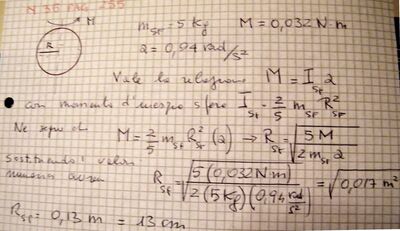 N 36 PAG. 255
M
R
m_SF = 5 Kg   M = 0,032 N·m
α = 0,94 rad/s²
Vale la relazione M = I_SF α
con momento d'inerzia sfera I_SF = 2/5 m_SF R²_SF
Ne segue che M = 2/5 m_SF R²_SF (α) → R_SF = √(5 M / 2 m_SF α)
sostituendo i valori
numerici avremo R_SF = √(5 (0,032 N·m) / 2 (5 Kg) (0,94 rad/s²)) = √(0,017 m²)
R_SF = 0,13 m = 13 cm